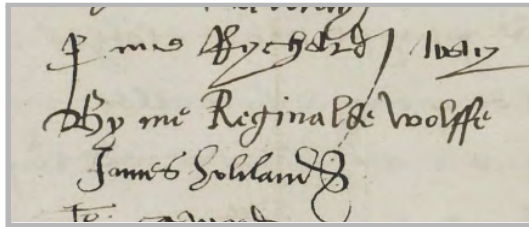 p me Rychard way
By me Reginalde wolffe
James hollande